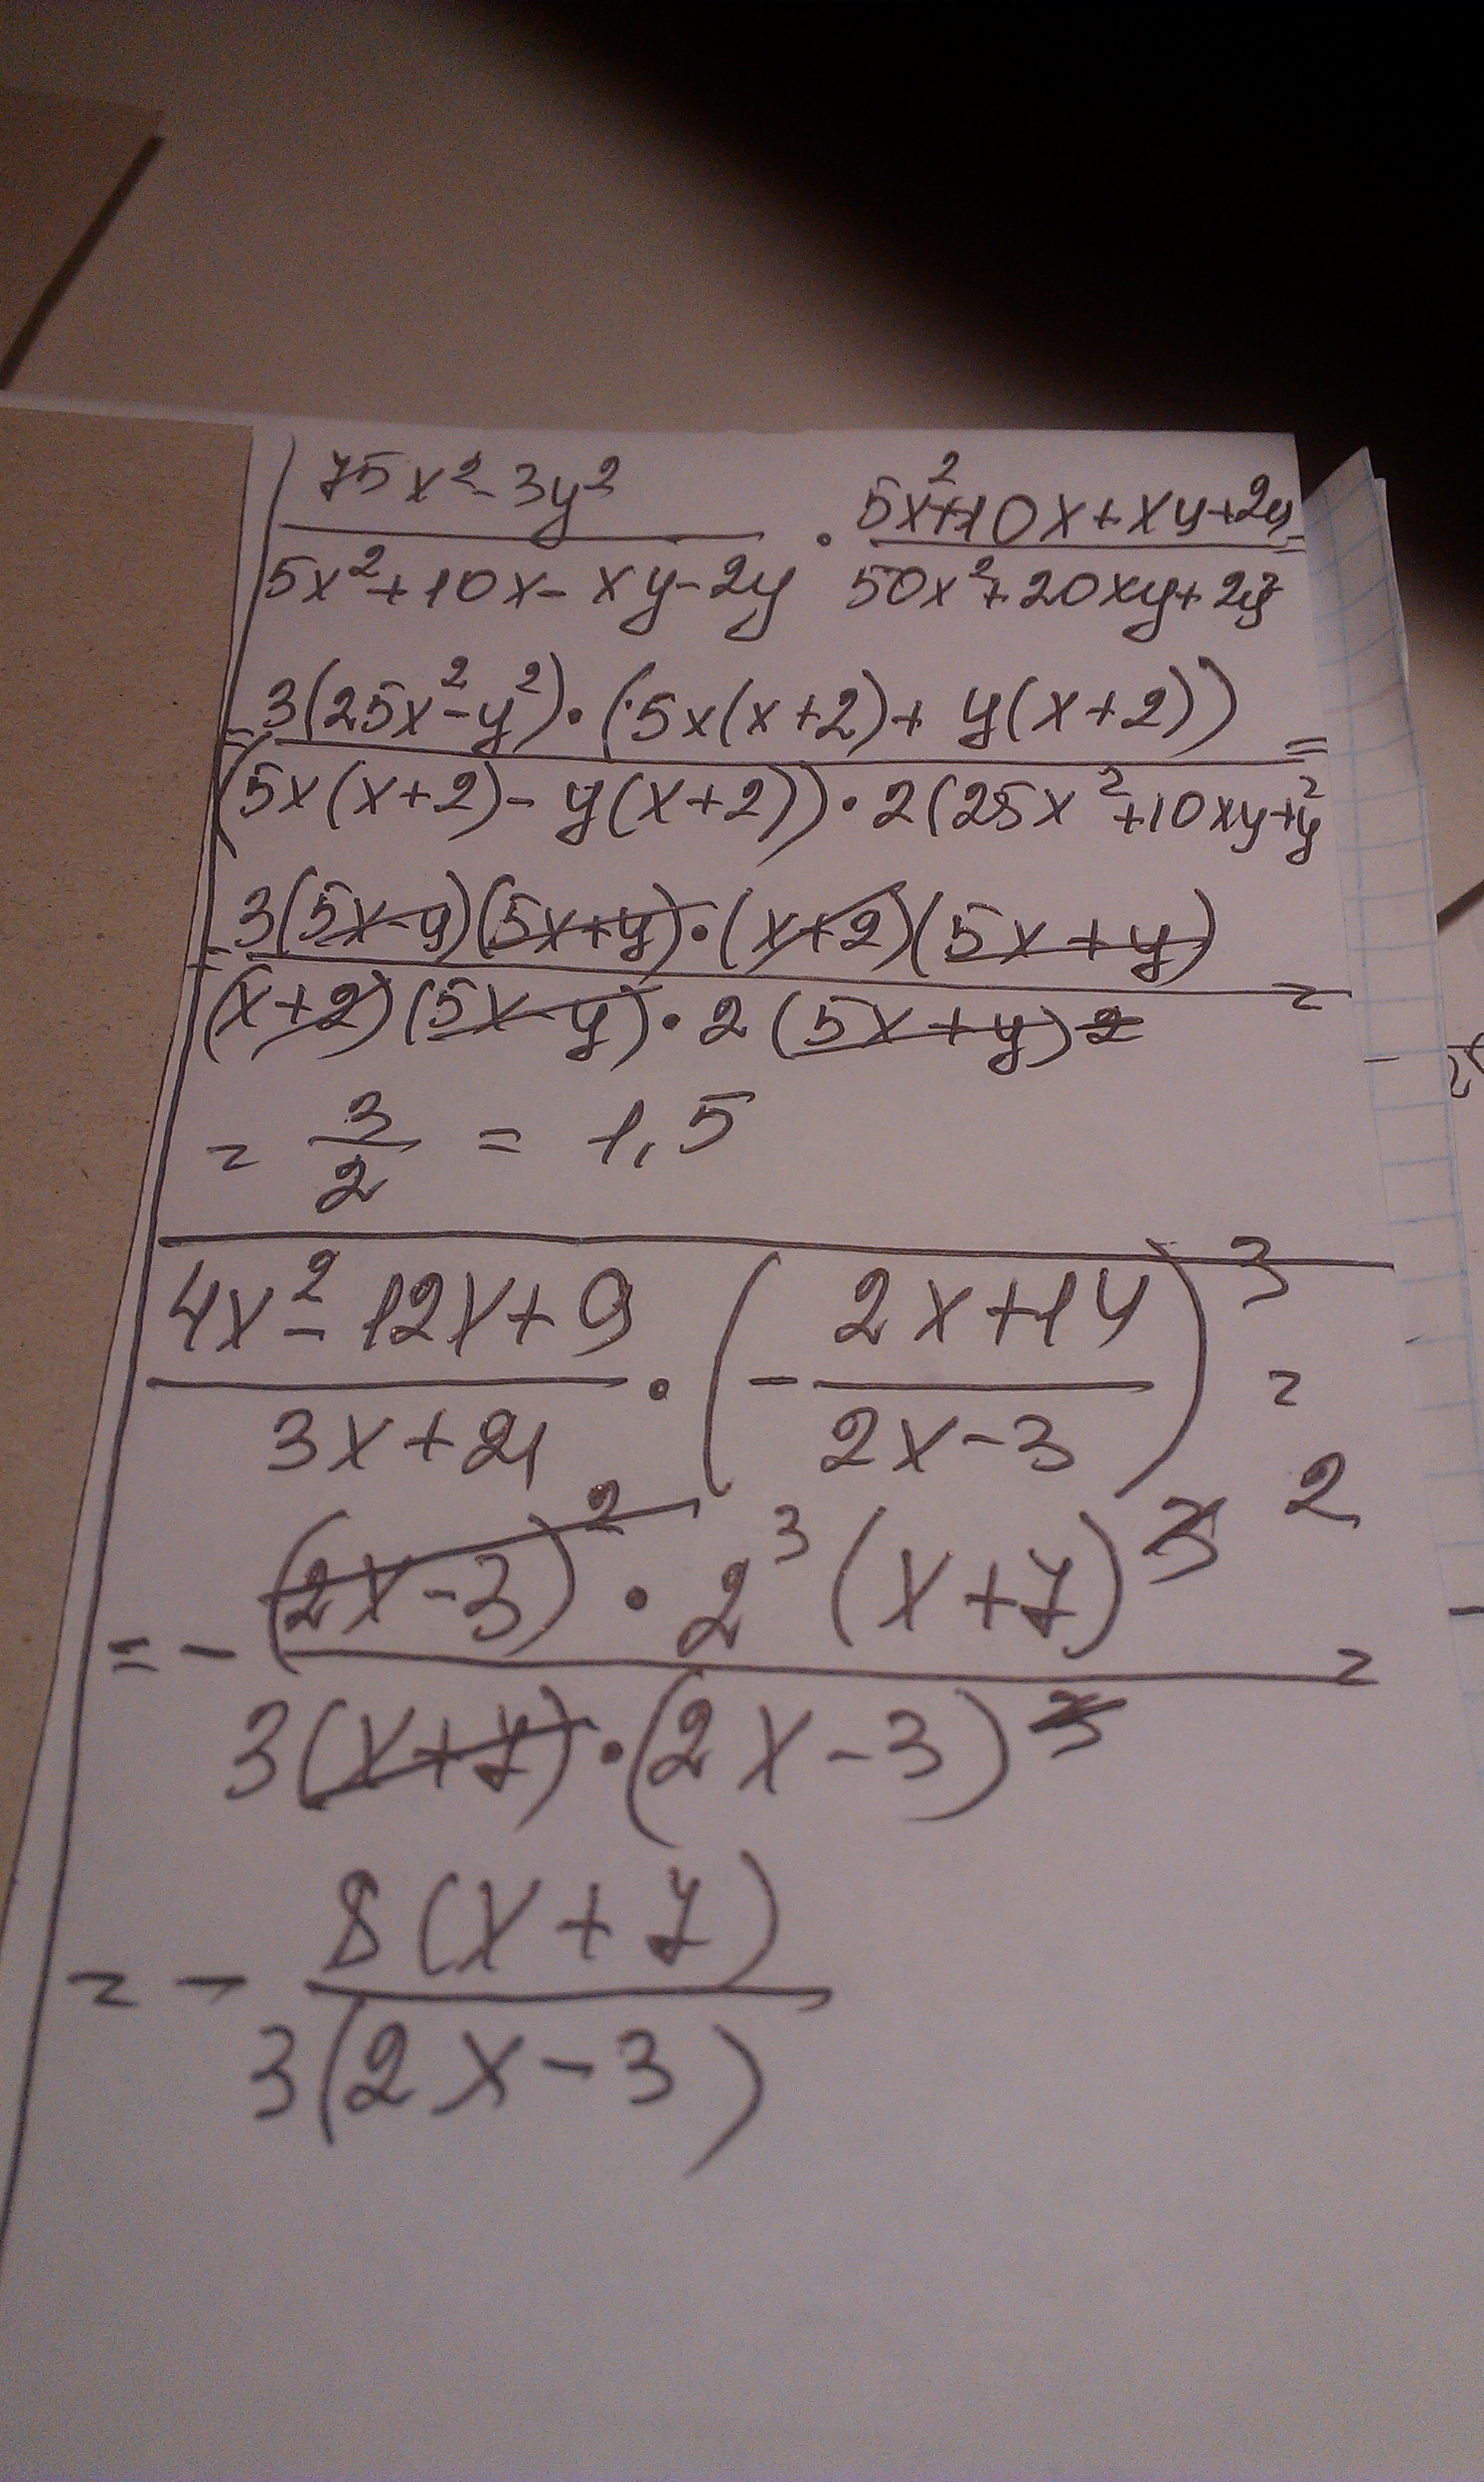 75x² - 3y² / 5x² + 10x - xy - 2y · 5x² + 10x + xy + 2y / 50x² + 20xy + 2y² =
= 3(25x² - y²) · (5x(x+2) + y(x+2)) / (5x(x+2) - y(x+2)) · 2(25x² + 10xy + y² =
= 3(5x-y)(5x+y) · (x+2)(5x+y) / (x+2)(5x-y) · 2(5x+y)2 =
= 3/2 = 1,5
4x² - 12x + 9 / 3x + 21 · (- 2x+14 / 2x-3)³ =
= - (2x-3)² · 2³(x+7)³ 2 / 3(x+7) · (2x-3)³ =
= - 8(x+7) / 3(2x-3)